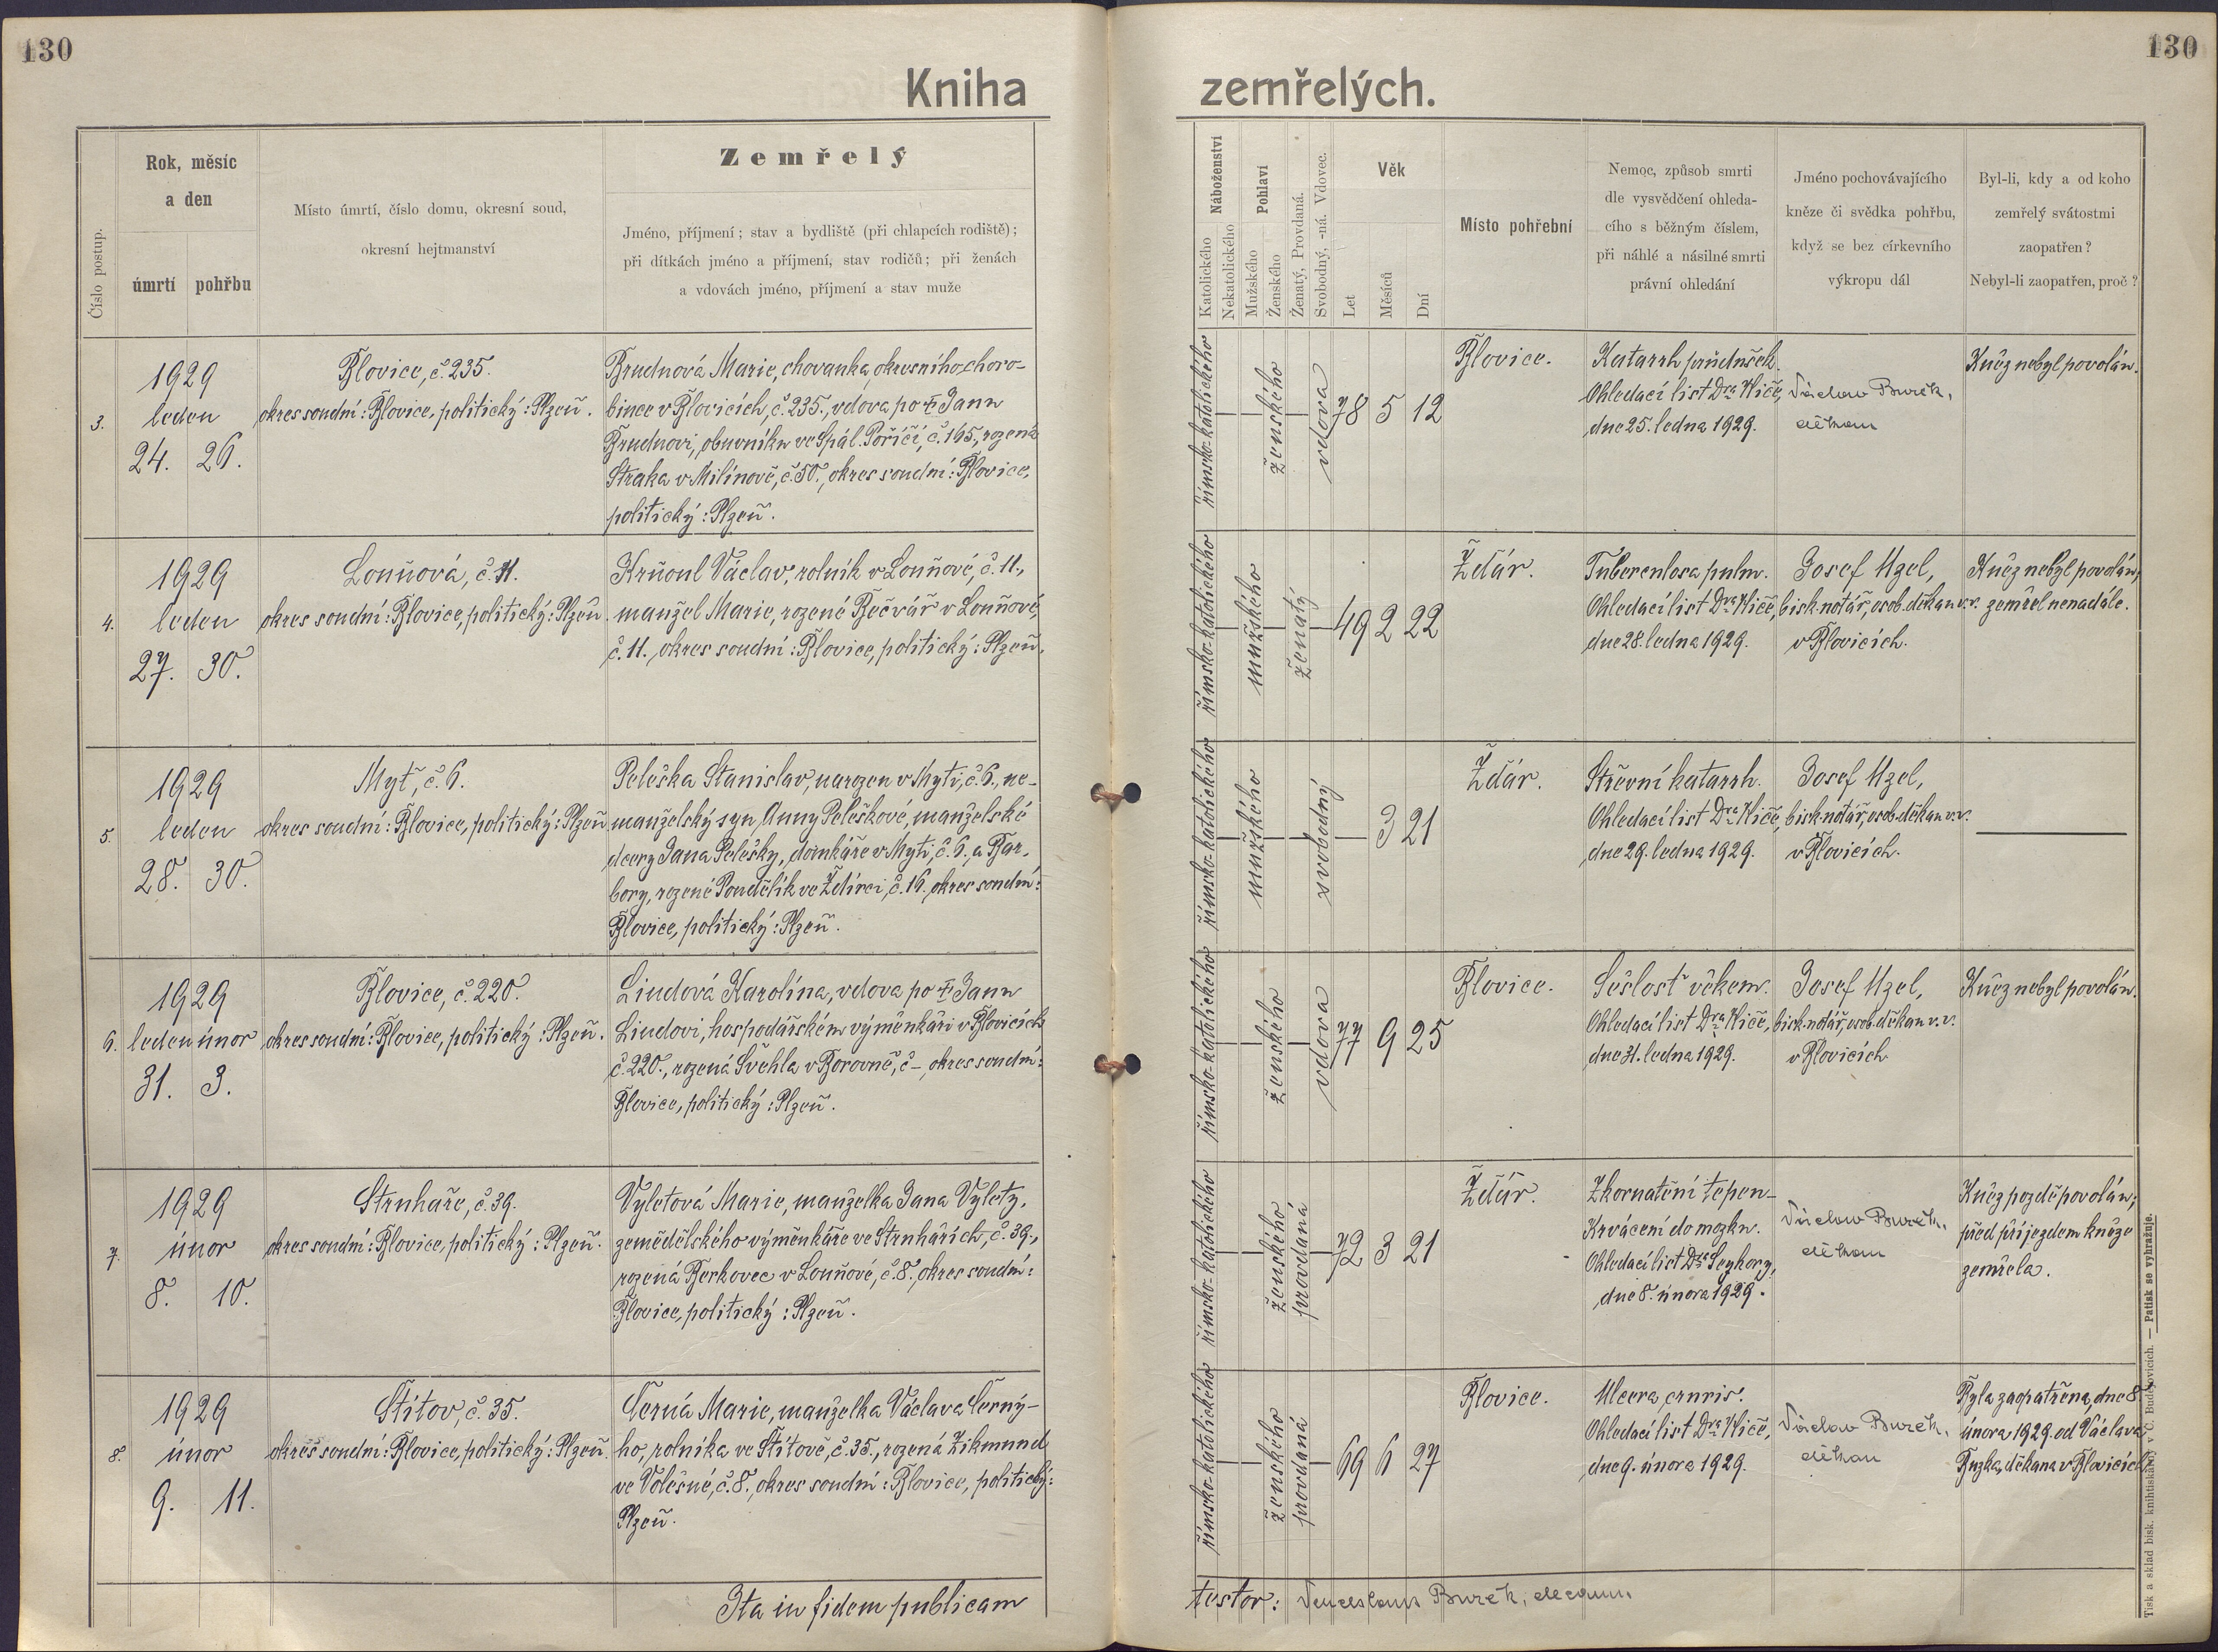 130
130
Kniha zemřelých.
Číslo postup.
Rok, měsíc
a den
úmrtí pohřbu
Místo úmrtí, číslo domu, okresní soud,
okresní hejtmanství
Zemřelý
Jméno, příjmení; stav a bydliště (při chlapcích rodiště);
při dítkách jméno a příjmení, stav rodičů; při ženách
a vdovách jméno, příjmení a stav muže
Náboženství
Katolického
Nekatolického
Pohlaví
Mužského
Ženského
Ženatý, Provdaná.
Svobodný, -ná. Vdovec.
Věk
Let
Měsíců
Dní
Místo pohřební
Nemoc, způsob smrti
dle vysvědčení ohleda-
cího s běžným číslem,
při náhlé a násilné smrti
právní ohledání
Jméno pochovávajícího
kněze či svědka pohřbu,
když se bez církevního
výkropu dál
Byl-li, kdy a od koho
zemřelý svátostmi
zaopatřen?
Nebyl-li zaopatřen, proč?
3.
1929
leden
24. 26.
Blovice, č. 235.
okres soudní: Blovice, politický: Plzeň.
Brudnová Marie, chovanka okresního choro-
bince v Blovicích, č. 235., vdova po † Janu
Brudnovi, obuvníku ve Spál. Poříčí, č. 165, rozená
Straka v Milínově, č. 50., okres soudní: Blovice,
politický: Plzeň.
římsko-katolického
ženského
vdova
78 5 12
Blovice.
Katarrh průdušek.
Ohledací list Dra Kliče,
dne 25. ledna 1929.
Václav Burek,
děkan
Kněz nebyl povolán.
4.
1929
leden
27. 30.
Louňová, č. 11.
okres soudní: Blovice, politický: Plzeň.
Krňoul Václav, rolník v Louňové, č. 11.,
manžel Marie, rozené Bečvář v Louňové,
č. 11., okres soudní: Blovice, politický: Plzeň.
římsko-katolického
mužského
ženatý
49 2 22
Ždár.
Tuberculosa pulm.
Ohledací list Dra Kliče,
dne 28. ledna 1929.
Josef Uzel,
bisk. notář, osob. děkan v. v.
v Blovicích.
Kněz nebyl povolán,
zemřel nenadále.
5.
1929
leden
28. 30.
Myť, č. 6.
okres soudní: Blovice, politický: Plzeň
Peleška Stanislav, narozen v Myti, č. 6., ne-
manželský syn Anny Peleškové, manželské
dcery Jana Pelešky, domkáře v Myti, č. 6., a Bar-
bory, rozené Pondělík ve Ždírci, č. 16., okres soudní:
Blovice, politický: Plzeň.
římsko-katolického
mužského
svobodný
3 21
Ždár.
Střevní katarrh.
Ohledací list Dra Kliče,
dne 29. ledna 1929.
Josef Uzel,
bisk. notář, osob. děkan v. v.
v Blovicích.
6.
1929
leden únor
31. 3.
Blovice, č. 220.
okres soudní: Blovice, politický: Plzeň.
Lindová Karolína, vdova po † Janu
Lindovi, hospodářském výměnkáři v Blovicích
č. 220., rozená Švehla v Borovně, č -, okres soudní:
Blovice, politický: Plzeň.
římsko-katolického
ženského
vdova
77 9 25
Blovice.
Sešlosť věkem.
Ohledací list Dra Kliče,
dne 31. ledna 1929.
Josef Uzel,
bisk. notář, osob. děkan v. v.
v Blovicích
Kněz nebyl povolán.
7.
1929
únor
8. 10.
Struhaře, č. 39.
okres soudní: Blovice, politický: Plzeň.
Vyletová Marie, manželka Jana Vylety,
zemědělského výměnkáře ve Struhařích, č. 39.,
rozená Berkovec v Louňové, č. 8., okres soudní:
Blovice, politický: Plzeň.
římsko-katolického
ženského
provdaná
72 3 21
Ždár.
Zkornatění tepen-
Krvácení do mozku.
Ohledací list Dra Seykory,
dne 8. února 1929.
Václav Burek,
děkan
Kněz pozdě povolán;
před příjezdem kněze
zemřela.
8.
1929
únor
9. 11.
Štítov, č. 35.
okres soudní: Blovice, politický: Plzeň.
Černá Marie, manželka Václava Černý-
ho, rolníka ve Štítově, č. 35., rozená Zikmund
ve Volešné, č. 8., okres soudní: Blovice, politický:
Plzeň.
římsko-katolického
ženského
provdaná
69 6 27
Blovice.
Ulcera cruris.
Ohledací list Dra Kliče,
dne 9. února 1929.
Václav Burek,
děkan
Byla zaopatřena dne 8.
února 1929. od Václava
děkana v Blovicích
Ita in fidem publicam
testor: Venceslaus Burek, decanus
Tisk a sklad bisk. knihtiskárny v Č. Budějovicích. — Patisk se vyhražuje.